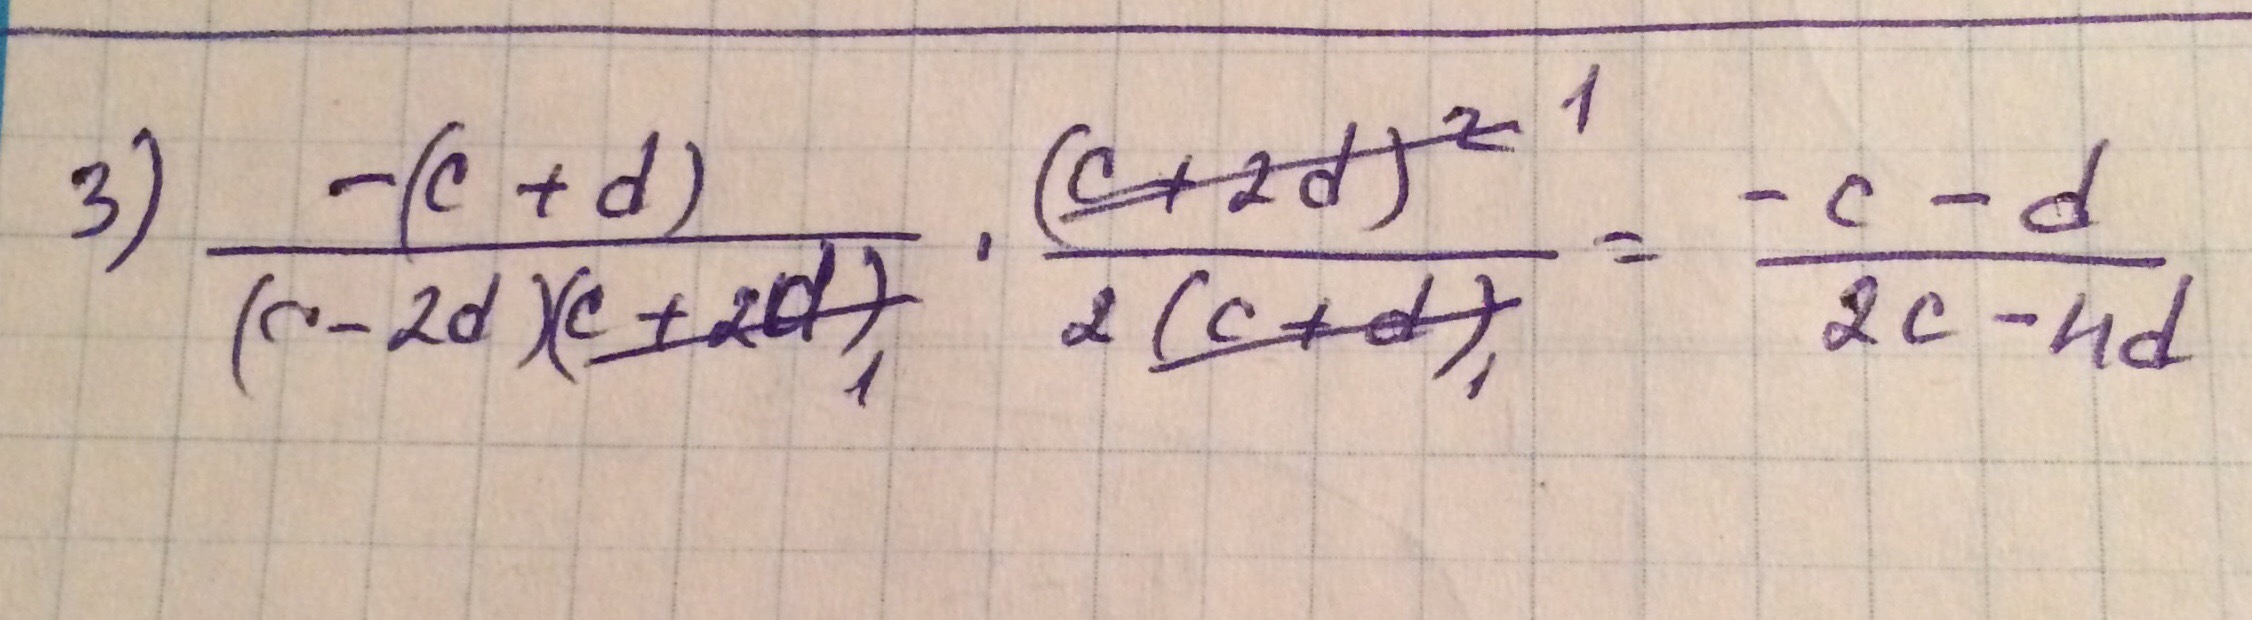 3) -(c + d) / (c - 2d)(c + 2d) 1 · (c + 2d)² 1 / 2 (c + d) 1 = -c - d / 2c - 4d